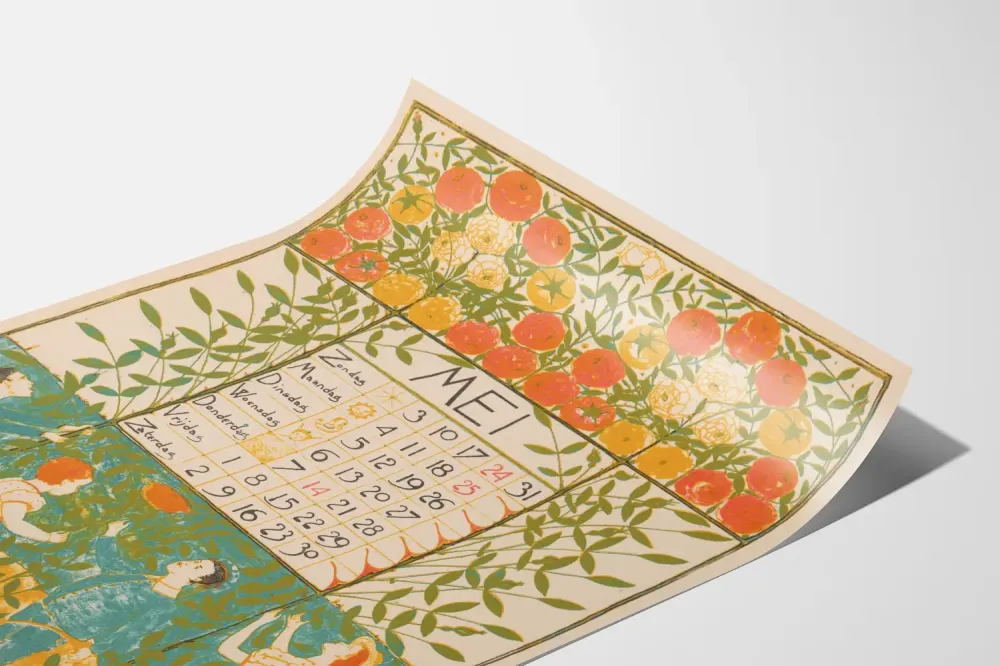 MEI
Zondag 3 10 17 24 31
Maandag 4 11 18 25
Dinsdag 5 12 19 26
Woensdag 6 13 20 27
Donderdag 7 14 21 28
Vrijdag 1 8 15 22 29
Zaterdag 2 9 16 23 30